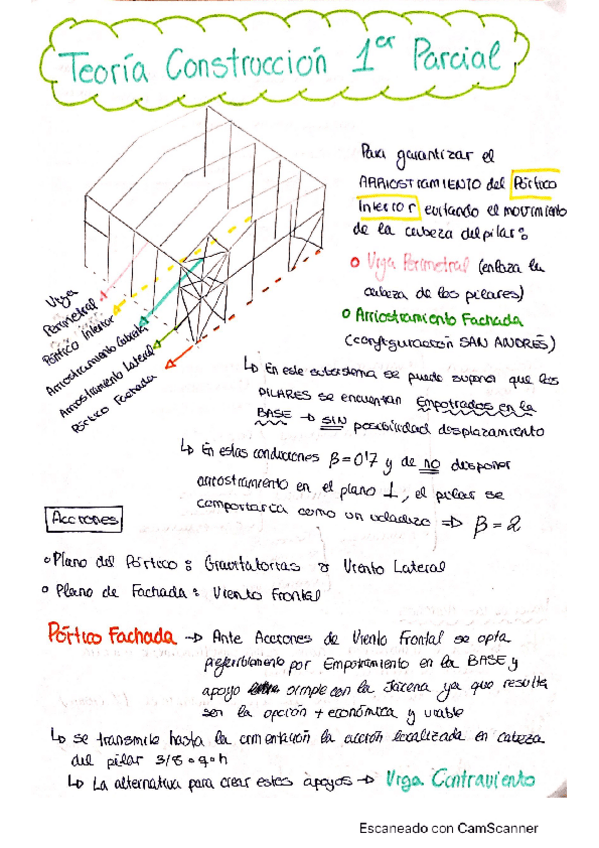 Teoría Construcción 1er Parcial
Para garantizar el
ARRIOSTRAMIENTO del Pórtico
Interior evitando el movimiento
de la cabeza del pilar:
o Viga Perimetral (enlaza la
cabeza de los pilares)
o Arriostramiento Fachada
(configuración SAN ANDRÉS)
Viga
Perimetral
Pórtico Interior
Arriostramiento Cubierta
Arriostramiento Lateral
Pórtico Fachada
↳ En este subsistema se puede suponer que los
PILARES se encuentan Empotrados en la
BASE → SIN posibilidad desplazamiento
↳ En estas condiciones β=0'7 y de no disponer
arriostramiento en el plano ⊥, el pilar se
comportaría como un voladizo ⇒ β=2
Acciones
o Plano del Pórtico: Gravitatorias o Viento Lateral
o Plano de Fachada: Viento Frontal
Pórtico Fachada → Ante Acciones de Viento Frontal se opta
preferiblemente por Empotramiento en la BASE y
apoyo simple con la Jácena ya que resulta
ser la opción + económica y viable
↳ se transmite hasta la cimentación la acción localizada en cabeza
del pilar 3/8·q·h
↳ La alternativa para crear estos apoyos → Viga Contraviento
Escaneado con CamScanner